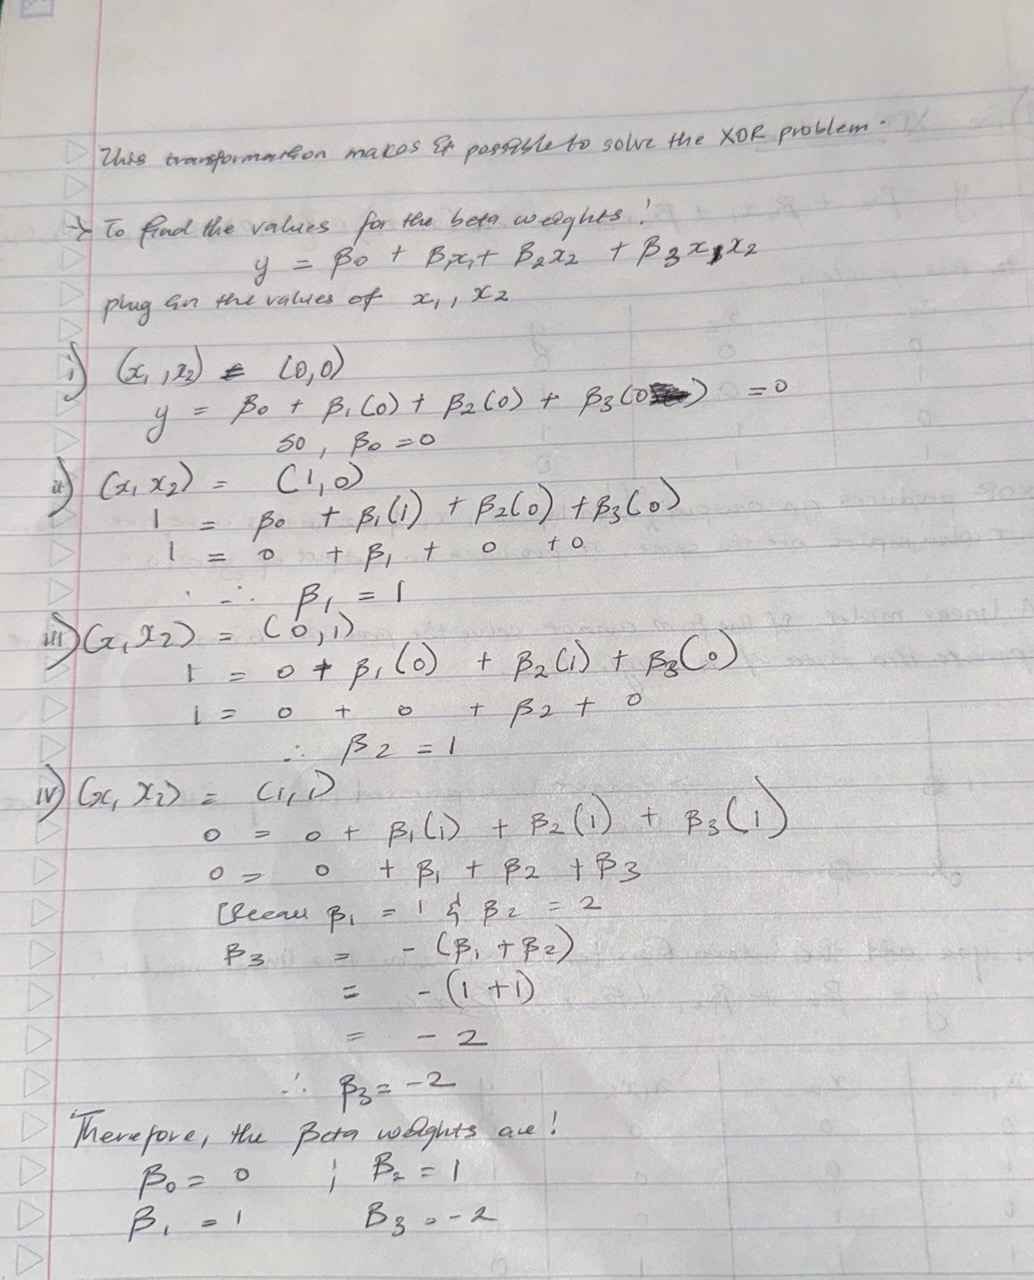 This transformation makes it possible to solve the XOR problem.
→ To find the values for the beta weights:
y = β0 + β1x1 + β2x2 + β3x1x2
plug in the values of x1, x2
i) (x1, x2) = (0,0)
y = β0 + β1(0) + β2(0) + β3(0) = 0
so, β0 = 0
ii) (x1 x2) = (1,0)
1 = β0 + β1(1) + β2(0) + β3(0)
1 = 0 + β1 + 0 + 0
∴ β1 = 1
iii) (x1 x2) = (0,1)
1 = 0 + β1(0) + β2(1) + β3(0)
1 = 0 + 0 + β2 + 0
∴ β2 = 1
iv) (x1 x2) = (1,1)
0 = 0 + β1(1) + β2(1) + β3(1)
0 = 0 + β1 + β2 + β3
β1 = 1 & β2 = 2
β3 = -(β1 + β2)
= -(1+1)
= -2
∴ β3 = -2
Therefore, the Beta weights are:
β0 = 0 ; β2 = 1
β1 = 1 β3 = -2